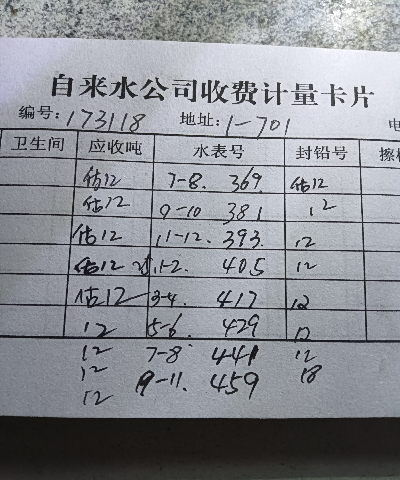 自来水公司收费计量卡片
编号:173118 地址:1-701
卫生间 应收吨 水表号 封铅号
估12 7-8. 369 估12
估12 9-10 381 12
估12 11-12. 393. 12
估12 1-2. 405 12
估12 3-4. 417 12
12 5-6. 429 12
12 7-8 441 12
12 9-11. 459 18
12